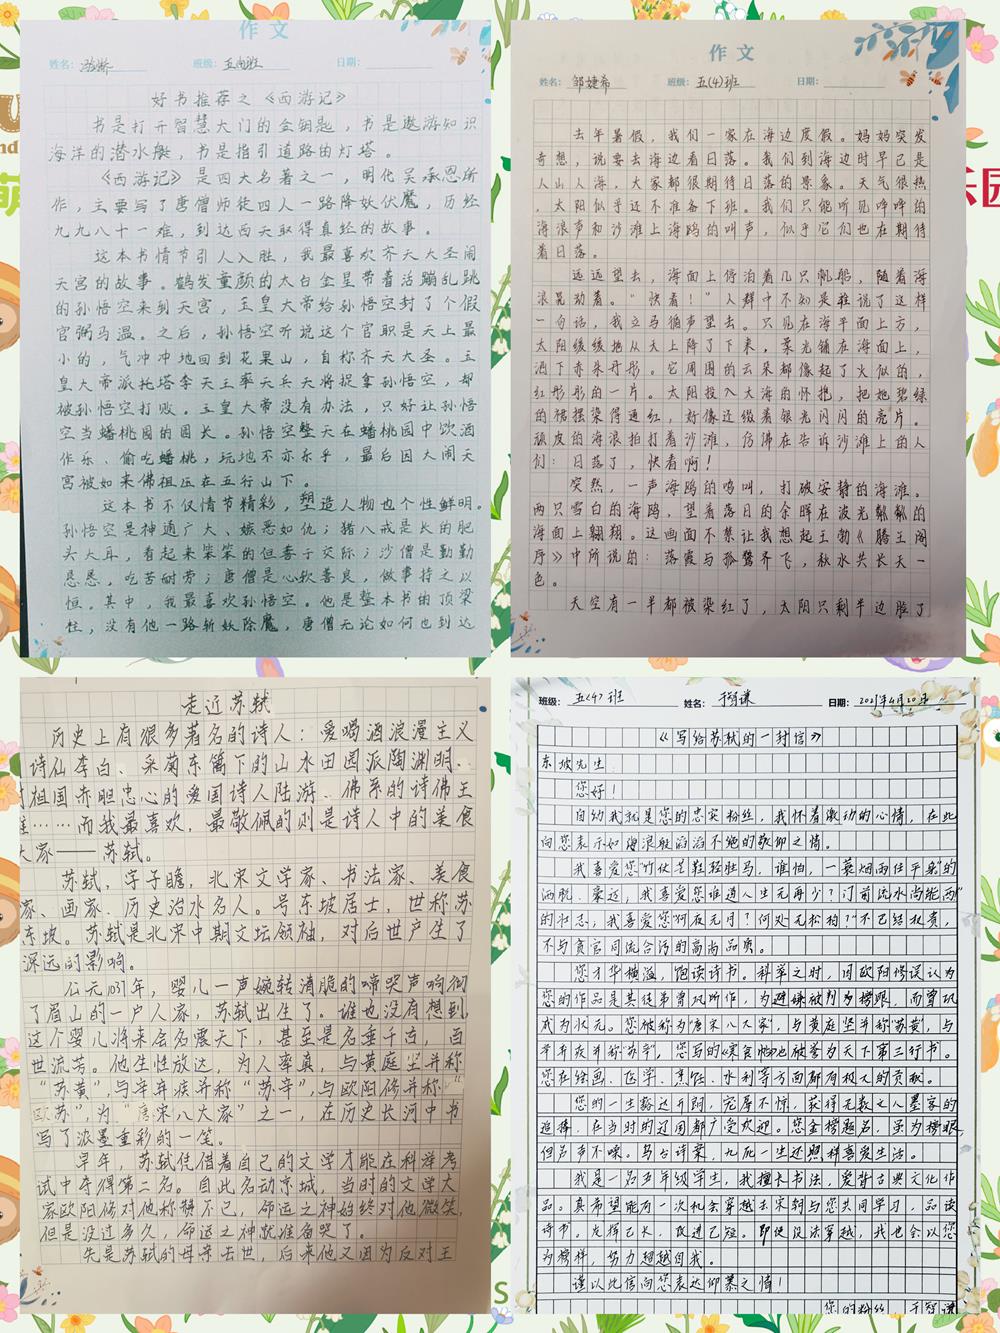 作文
姓名:
班级: 五(4)班
日期:
好书推荐之《西游记》
书是打开智慧大门的金钥匙，书是遨游知识
海洋的潜水艇，书是指引道路的灯塔。
《西游记》是四大名著之一，明代吴承恩所
作，主要写了唐僧师徒四人一路降妖伏魔，历经
九九八十一难，到达西天取得真经的故事。
这本书情节引人入胜，我最喜欢齐天大圣闹
天宫的故事。鹤发童颜的太白金星带着活蹦乱跳
的孙悟空来到天宫，玉皇大帝给孙悟空封了个假
官弼马温。之后，孙悟空听说这个官职是天上最
小的，气冲冲地回到花果山，自称齐天大圣。玉
皇大帝派托塔李天王率天兵天将捉拿孙悟空，却
被孙悟空打败。玉皇大帝没有办法，只好让孙悟
空当蟠桃园的园长。孙悟空整天在蟠桃园中饮酒
作乐、偷吃蟠桃，玩地不亦乐乎，最后因大闹天
宫被如来佛祖压在五行山下。
这本书不仅情节精彩，塑造人物也个性鲜明。
孙悟空是神通广大、嫉恶如仇；猪八戒是长的肥
头大耳，看起来笨笨的但善于交际；沙僧是勤勤
恳恳，吃苦耐劳；唐僧是心软善良，做事持之以
恒。其中，我最喜欢孙悟空。他是整本书的顶梁
柱，没有他一路斩妖除魔，唐僧无论如何也到达
作文
姓名: 邹婕希
班级: 五(4)班
日期:
去年暑假，我们一家在海边度假。妈妈突发
奇想，说要去海边看日落。我们到海边时早已是
人山人海，大家都很期待日落的景象。天气很热
，太阳似乎还不准备下班。我们只能听见哗哗的
海浪声和沙滩上海鸥的叫声，似乎它们也在期待
着日落。
远远望去，海面上停泊着几只帆船，随着海
浪晃动着。“快看！”人群中不知是谁说了这样
一句话，我立马循声望去。只见在海平面上方，
太阳缓缓地从天上降了下来，柔光铺在海面上，
洒下赤朱丹彤。它周围的云朵都像起了火似的，
红彤彤的一片。太阳投入大海的怀抱，把她碧绿
的裙摆染得通红，好像还缀着银光闪闪的亮片。
顽皮的海浪拍打着沙滩，仿佛在告诉沙滩上的人
们：日落了，快看啊！
突然，一声海鸥的鸣叫，打破安静的海滩。
两只雪白的海鸥，望着落日的余晖在波光粼粼的
海面上翱翔。这画面不禁让我想起王勃《腾王阁
序》中所说的：落霞与孤鹜齐飞，秋水共长天一
色。
天空有一半都被染红了，太阳只剩半边脸了
走近苏轼
历史上有很多著名的诗人：爱喝酒浪漫主义
诗仙李白、采菊东篱下的山水田园派陶渊明、
祖国赤胆忠心的爱国诗人陆游、佛系的诗佛王
……而我最喜欢，最敬佩的则是诗人中的美食
大家——苏轼。
苏轼，字子瞻，北宋文学家、书法家、美食
家、画家、历史治水名人。号东坡居士，世称苏
东坡。苏轼是北宋中期文坛领袖，对后世产生了
深远的影响。
公元1037年，婴儿一声婉转清脆的啼哭声响彻
了眉山的一户人家，苏轼出生了。谁也没有想到，
这个婴儿将来会名震天下，甚至是名垂千古，百
世流芳。他生性放达，为人率真，与黄庭坚并称
“苏黄”，与辛弃疾并称“苏辛”，与欧阳修并称“
欧苏”，为“唐宋八大家”之一，在历史长河中书
写了浓墨重彩的一笔。
早年，苏轼凭借着自己的文学才能在科举考
试中夺得第二名。自此名动京城，当时的文学大
家欧阳修对他称赞不已，命运之神始终对他微笑，
但是没过多久，命运之神就准备哭了。
先是苏轼的母亲去世，后来他又因为反对王
班级: 五(4)班
姓名: 于智谦
日期: 2021年4月20日
《写给苏轼的一封信》
东坡先生：
您好！
自幼我就是您的忠实粉丝，我怀着激动的心情，在此
向您表示如海浪般滔滔不绝的敬仰之情。
我喜爱您“竹杖芒鞋轻胜马，谁怕，一蓑烟雨任平生”的
洒脱、豪迈，我喜爱您“谁道人生无再少？门前流水尚能西”
的壮志，我喜爱您“何夜无月？何处无松柏？”不已经权贵，
不与贪官同流合污的高尚品质。
您才华横溢，饱读诗书。科举之时，因欧阳修误认为
您的作品是其徒弟曾巩所作，为避嫌被判为榜眼，而曾巩
成为状元。您被称为“唐宋八大家”，与黄庭坚并称“苏黄”，与
辛弃疾并称“苏辛”，您写的《寒食帖》也被誉为天下第三行书。
您在绘画、医学、烹饪、水利等方面都有极大的贡献。
您的一生豁达开朗，宠辱不惊，获得无数文人墨客的
追捧，在当时的辽国都广受欢迎。您金榜题名，虽为榜眼，
但名声不噪。乌台诗案，九死一生还照样喜爱生活。
我是一名五年级学生，我擅长书法，爱哲古典文化作
品。真希望能有一次机会穿越去宋朝与您共同学习，品读
诗书。发挥己长，改进己短。即使没法穿越，我也会以您
为榜样，努力超越自我。
谨以此信向您表达仰慕之情！
您的粉丝 于智谦